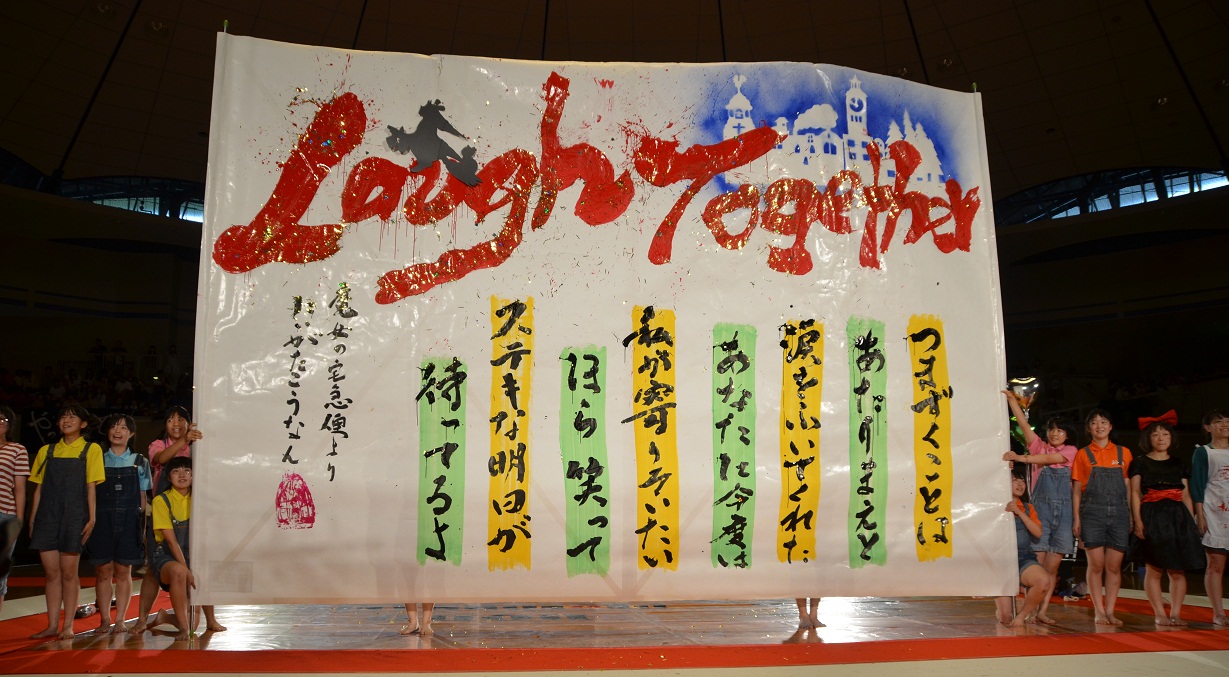 Laugh Together
つまずくことは
あたりまえと
涙をふいてくれた
あなたに今度は
私が寄りそいたい
ほら笑って
ステキな明日が
待ってるよ
魔女の宅急便より
おがたこうなん